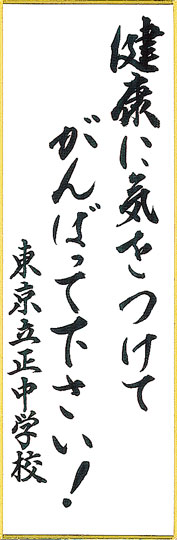 健康に気をつけて
がんばって下さい!
東京立正中学校